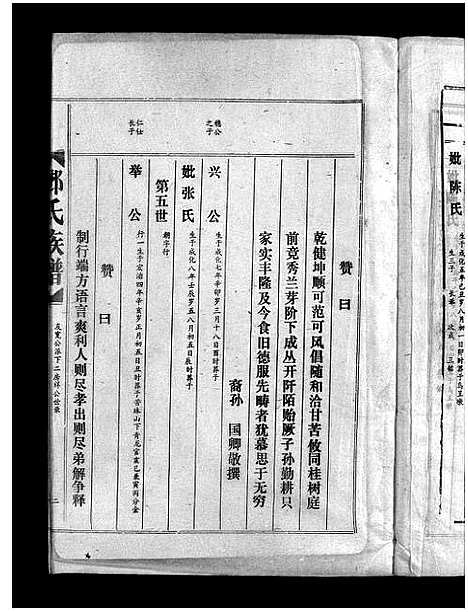 妣陈氏
赞曰
乾健坤顺可范可风倡随和洽甘苦攸同桂树庭
前竞秀兰芽阶下成丛开阡陌贻厥子孙勤耕只
家实丰隆及今食旧德服先畴者犹慕思于无穷
裔孙 国卿敬撰
魏公之子
兴公
生于成化七年辛卯岁三月十八日酉时葬子
妣张氏
生于成化八年壬辰岁五八月初五日辰时葬子
第五世
朝字行
仁仕长子
举公
行一生于宏治四年辛亥岁正月初五日丑时葬子
赞曰
制行端方语言爽利人则尽孝出则尽弟解争释
氏族谱
友宽公派下二房祥公世录
二